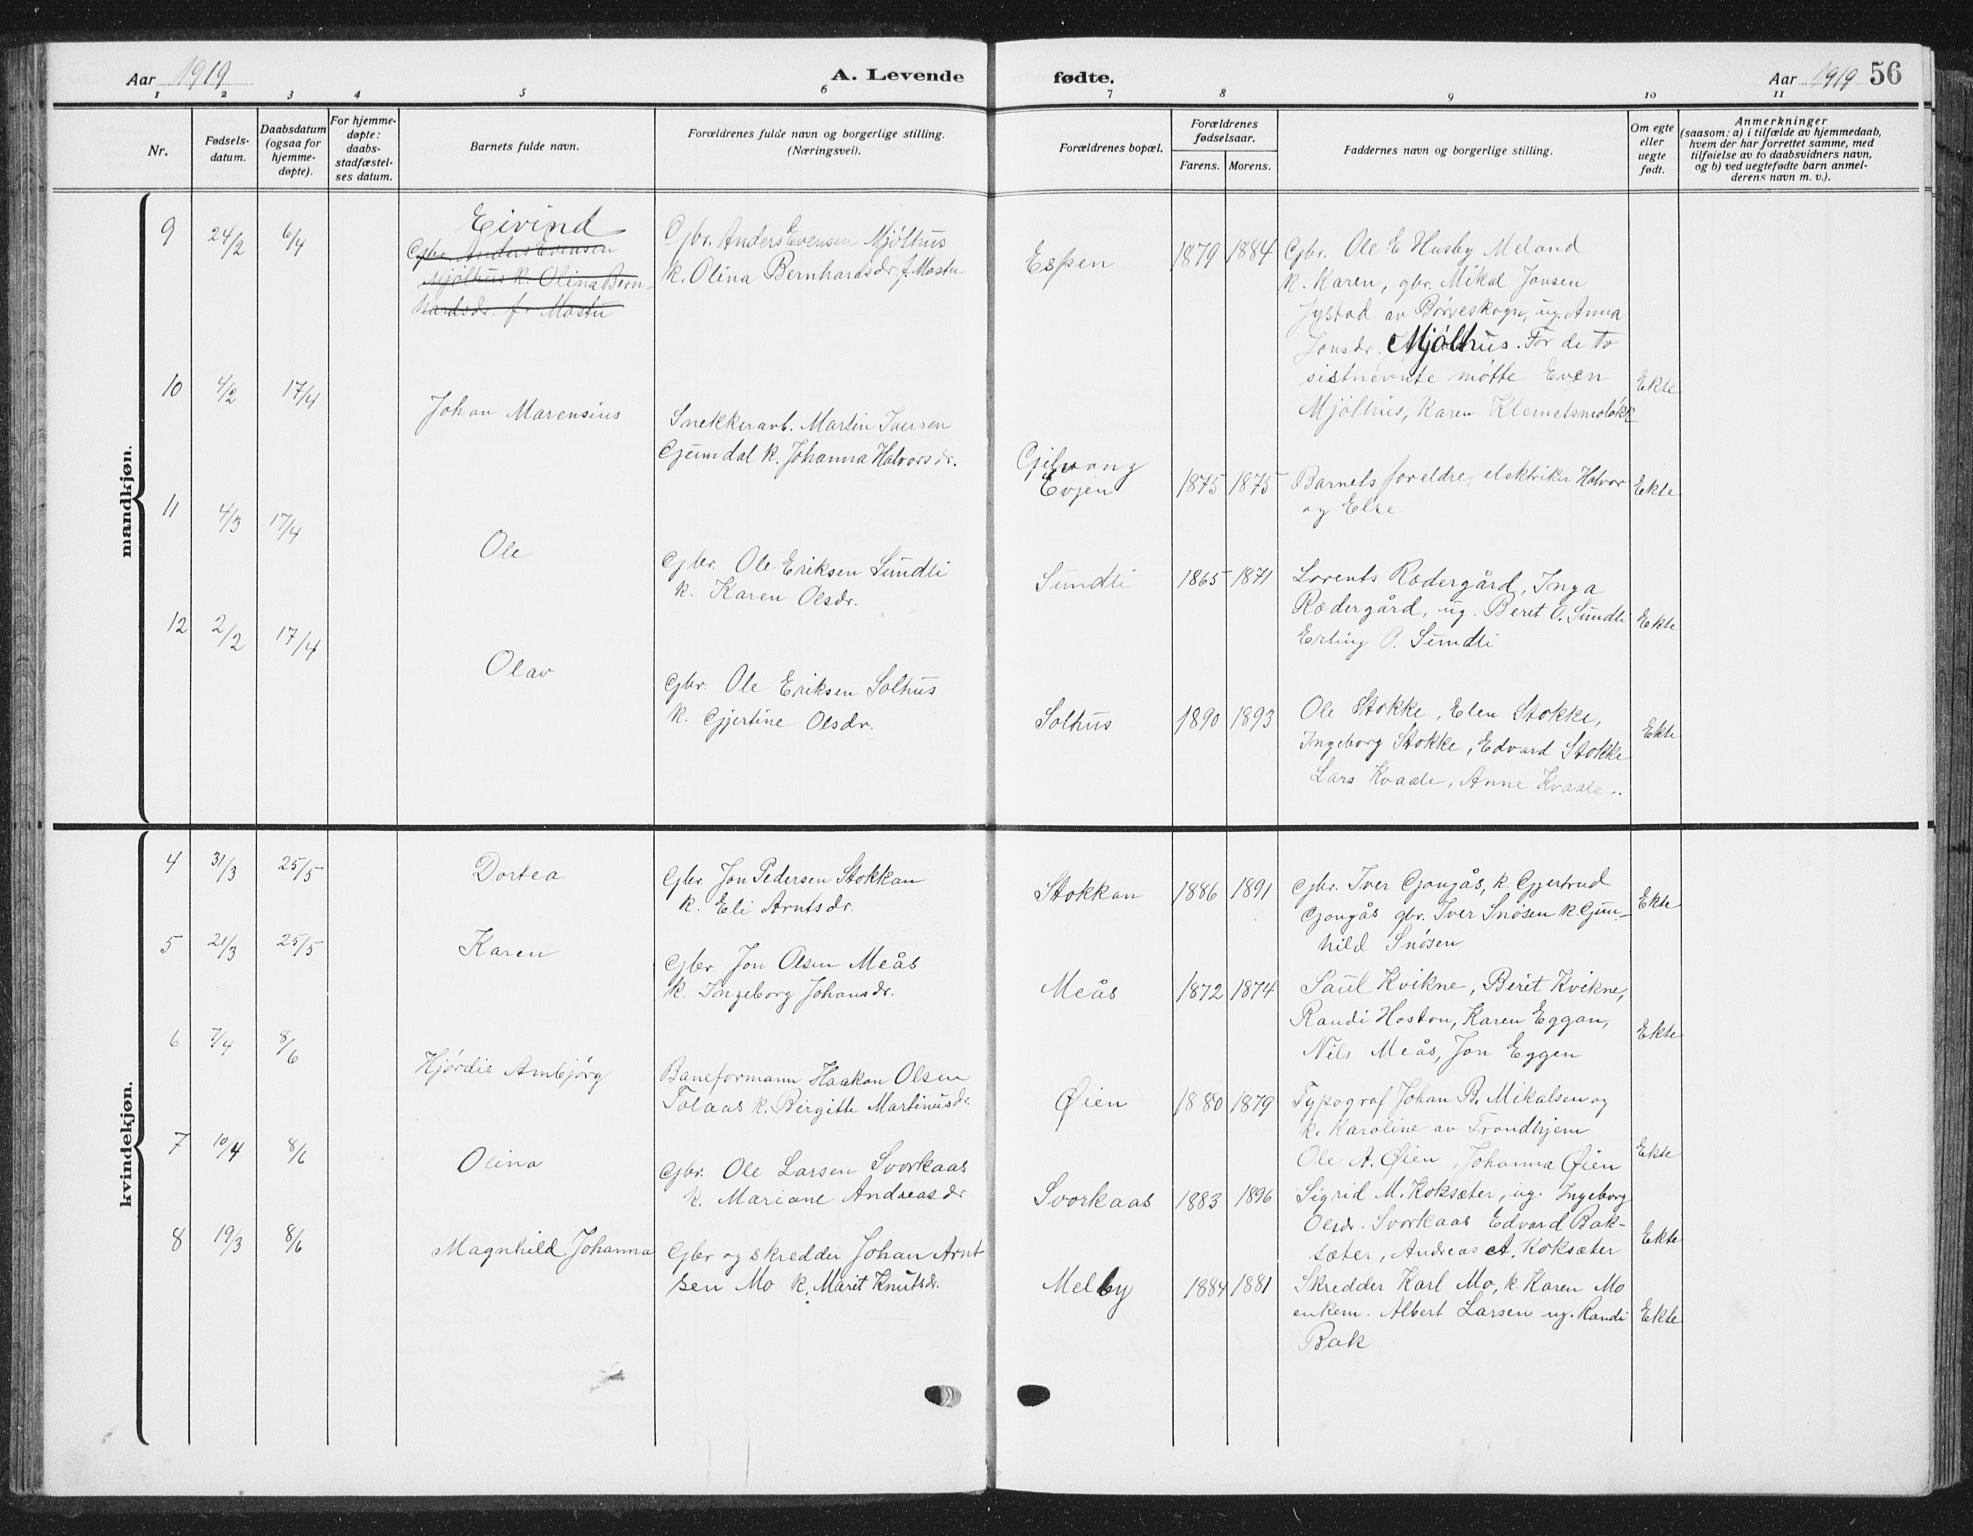 Aar 1919
A. Levende
fødte.
Aar 1919 56
1 2 3 4 5 6 7 8 9 10 11
Nr.
Fødsels-
datum.
Daabsdatum
(ogsaa for
hjemme-
døpte).
For hjemme-
døpte:
daabs-
stadfæstel-
ses datum.
Barnets fulde navn.
Forældrenes fulde navn og borgerlige stilling.
(Næringsvei).
Forældrenes bopæl.
Forældrenes
fødselsaar.
Farens. Morens.
Faddernes navn og borgerlige stilling.
Om egte
eller
uegte
født.
Anmerkninger
(saasom: a) i tilfælde av hjemmedaab,
hvem der har forrettet samme, med
tilføielse av to daabsvidners navn,
og b) ved uegtefødte barn anmel-
derens navn m. v.).
mandkjøn.
9 24/2 6/4
Eivind
Gbr. Anders Evensen
Mjølhus k. Olina Bern-
hardsdr. f. Mostu
Gbr. Anders Evensen Mjølhus
k. Olina Bernhardsdr f. Mostu
Espen
1879 1884
Gbr. Ole E Husby Meland
k. Karen, gbr. Mikal Jonsen
Jystad av Børveskogn, ug. Anna
Jonsdr. Mjølhus. For de to
sistnevnte møtte Even
Mjølhus, Karen
Ekte
10 4/2 17/4
Johan Marensius
Snekkerarb. Martin Iversen
Gjumdal k. Johanna Halvorsdr.
Gjelvang
Evjen
1875 1875
Barnets foreldre, elektriker Halvor
og Else
Ekte
11 4/3 17/4
Ole
Gbr. Ole Eriksen Sundli
k. Karen Olsdr.
Sundli
1865 1871
Lorents Rædergård, Inga
Rædergård, ug. Beret O. Sundli
Erling O. Sundli
Ekte
12 2/2 17/4
Olav
Gbr. Ole Eriksen Solhus
k. Gjertine Olsdr.
Solhus
1890 1893
Ole Stokke, Elen Stokke,
Ingeborg Stokke, Edvard Stokke
Lars Kvaale, Anne Kvaale.
Ekte
kvindekjøn.
4 31/3 25/5
Dortea
Gbr. Jon Pedersen Stokkan
k. Eli Arntsdr.
Stokkan
1886 1891
Gbr. Iver Gjongås, k. Gjertrud
Gjongås gbr. Iver Snøsen k. Gun-
hild Snøsen
Ekte
5 21/3 25/5
Karen
Gbr. Jon Olsen Meås
k. Ingeborg Johansdr.
Meås
1872 1874
Paul Kvikne, Beret Kvikne,
Randi Hoston, Karen Eggan,
Nils Meås, Jon Eggen
Ekte
6 7/4 8/6
Hjørdis Arnbjørg
Baneformann Haakon Olsen
Folaas k. Birgitte Martinusdr.
Øien
1880 1879
Typograf Johan B. Mikalsen og
k. Karoline av Trondhjem
Ole A. Øien, Johanna Øien
Ekte
7 10/4 8/6
Olina
Gbr. Ole Larsen Svorkaas
k. Mariane Andreasdr
Svorkaas
1883 1896
Sigrid M. Koksæter, ug. Ingeborg
Olsdr. Svorkaas Edvard Bak-
sæter, Andreas A. Koksæter
Ekte
8 19/3 8/6
Magnhild Johanna
Gbr og skredder Johan Arnt
sen Mo k. Marit Knutsdr.
Melby
1884 1881
Skredder Karl Mo, k. Karen Mo
enkem. Albert Larsen ug. Randi
Bak
Ekte